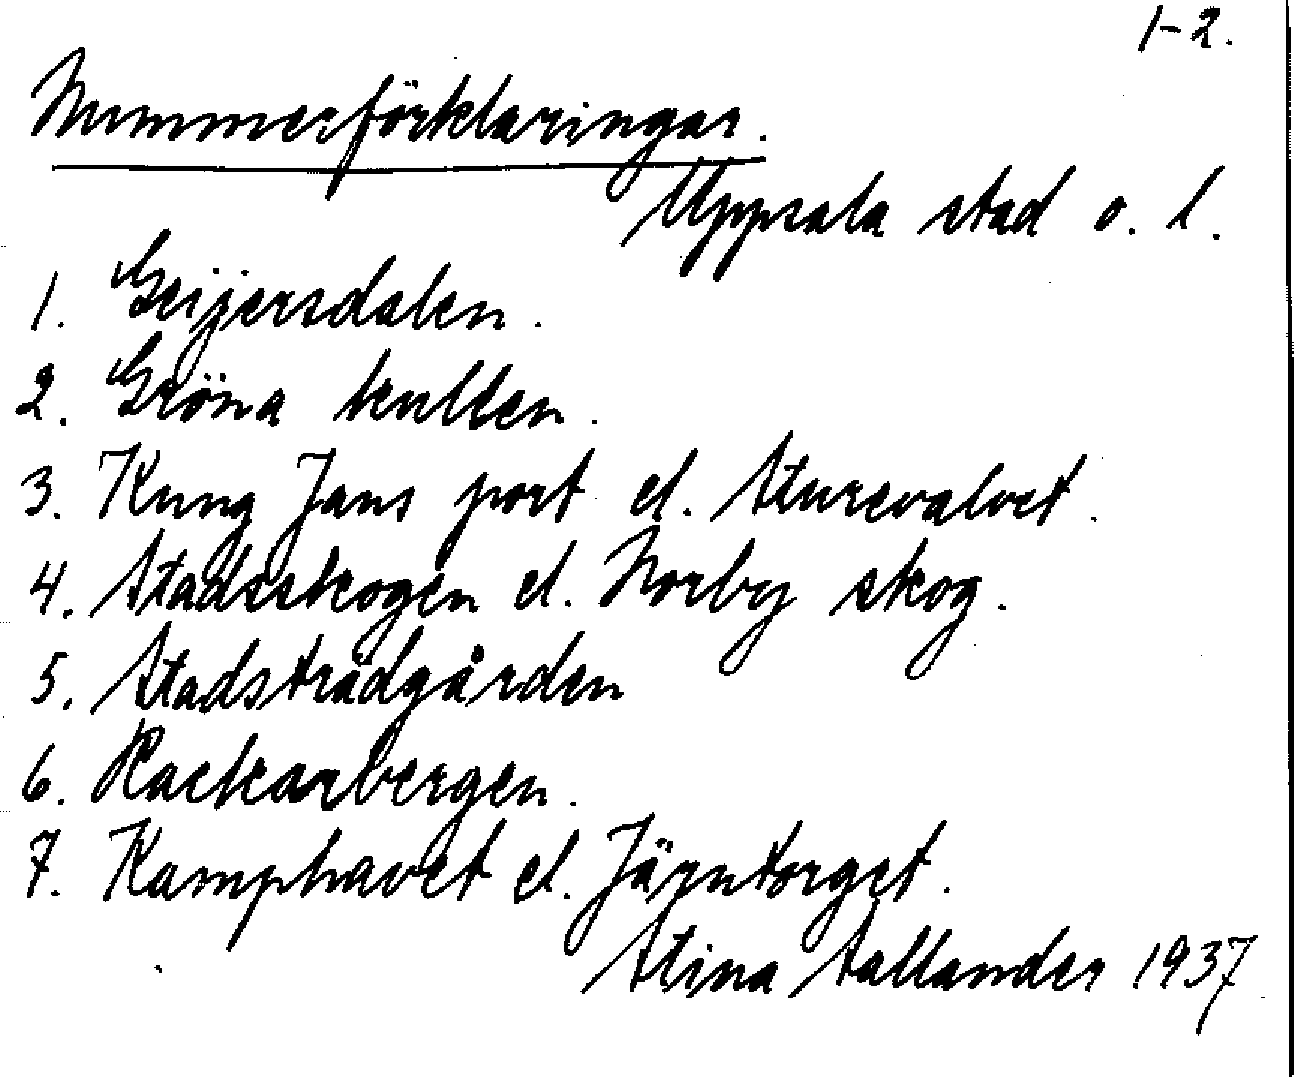 1-2.
Nummerförklaringar.
Uppsala stad o. l.
1. Geijersdalen.
2. Gröna kullen.
3. Kung Jans port el. Sturevalvet.
4. Stadsskogen el. Norby skog.
5. Stadsträdgården
6. Rackarbergen.
7. Kamphavet el. Järntorget.
Stina Sallander 1937